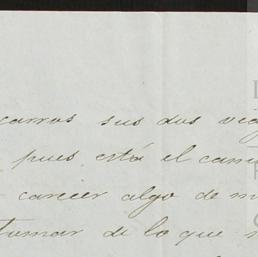 carros sus dos
pues está el
carecer algo de
tomar de lo que